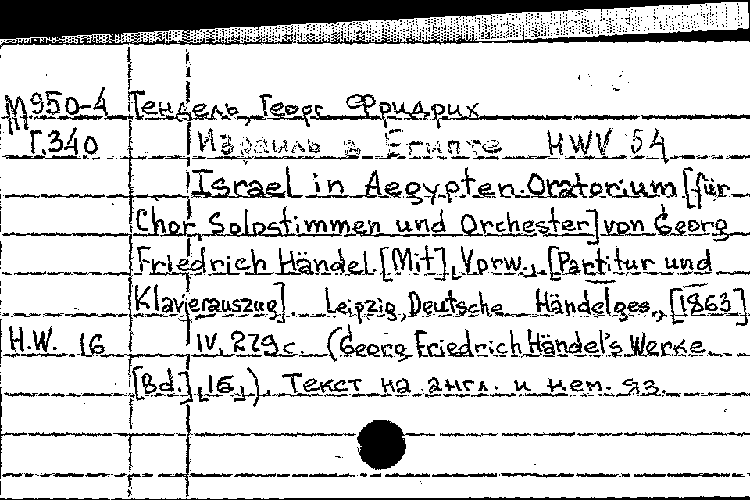 М950-4 Гендель, Георг Фридрих
Г.340 Израиль в Египте HWV 54
Israel in Aegypten. Oratorium [für
Chor, Solostimmen und Orchester] von Georg
Friedrich Händel. [Mit] „Vorw.“. [Partitur und
Klavierauszug]. Leipzig, Deutsche Händelges., [1863]
H.W. 16 IV, 279 с. (Georg Friedrich Händel's Werke.
[Bd.] „16“). Текст на англ. и нем. яз.